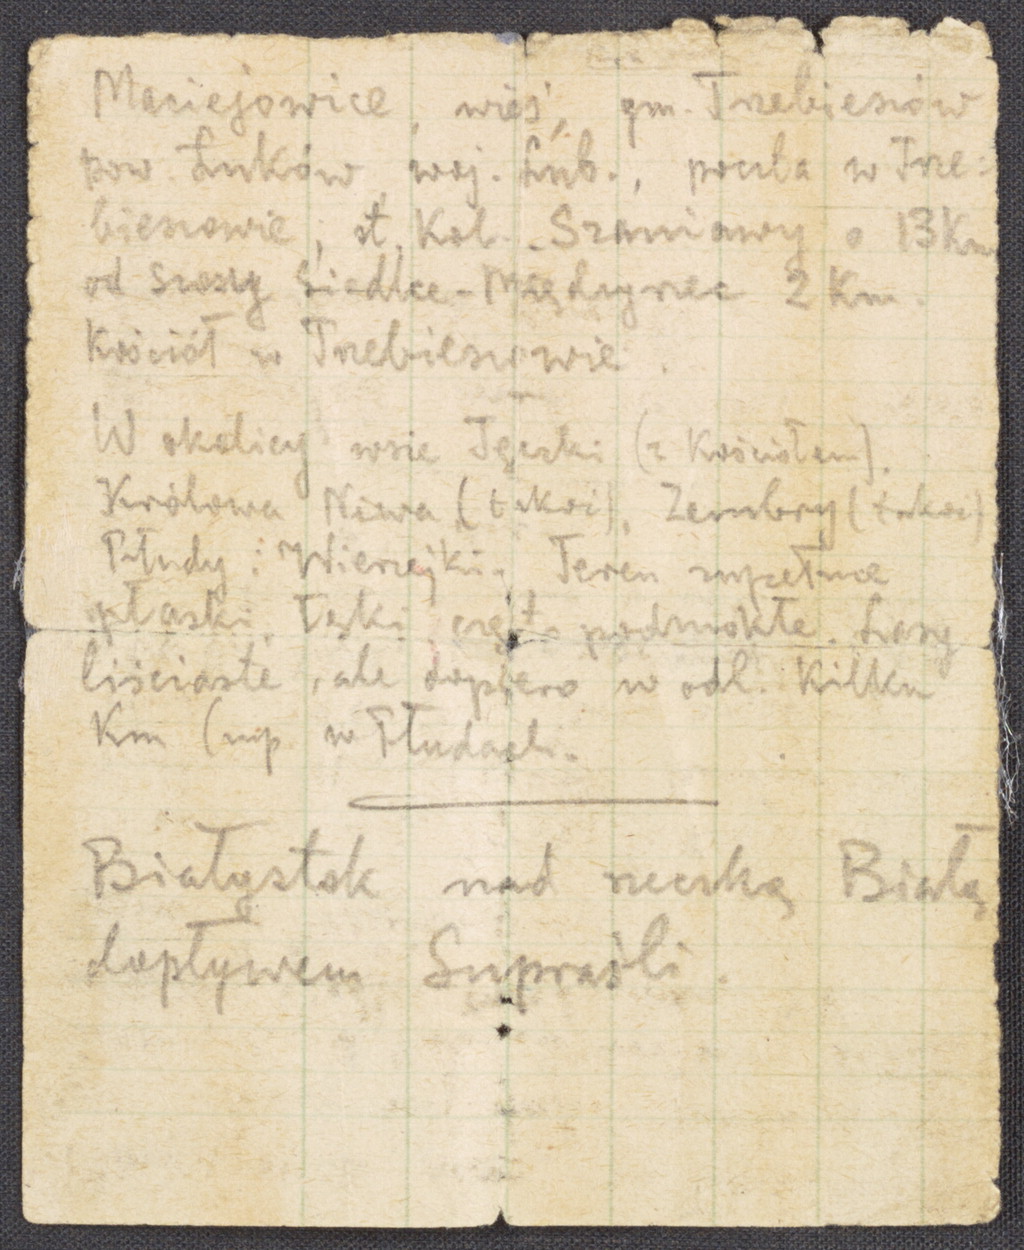 Maciejowice, wieś, gm. Trzebieszów
pow. Łuków woj. Lub., poczta w Trze=
bieszowie, st. kol. Szaniawy o 13 Km
od szosy Siedlce - Międzyrzec 2 Km.
Kościół w Trzebieszowie.
W okolicy wsie Jęczki (z Kościołem),
Królowa Niwa (także), Zembry (także)
Płudy i Wierzejki. Teren zupełnie
płaski, łąki, często podmokłe. Lasy
liściaste, ale dopiero w odl. Kilku
Km (np w Płudach.
Białystok nad rzeczką Białą
dopływem Supraśli.